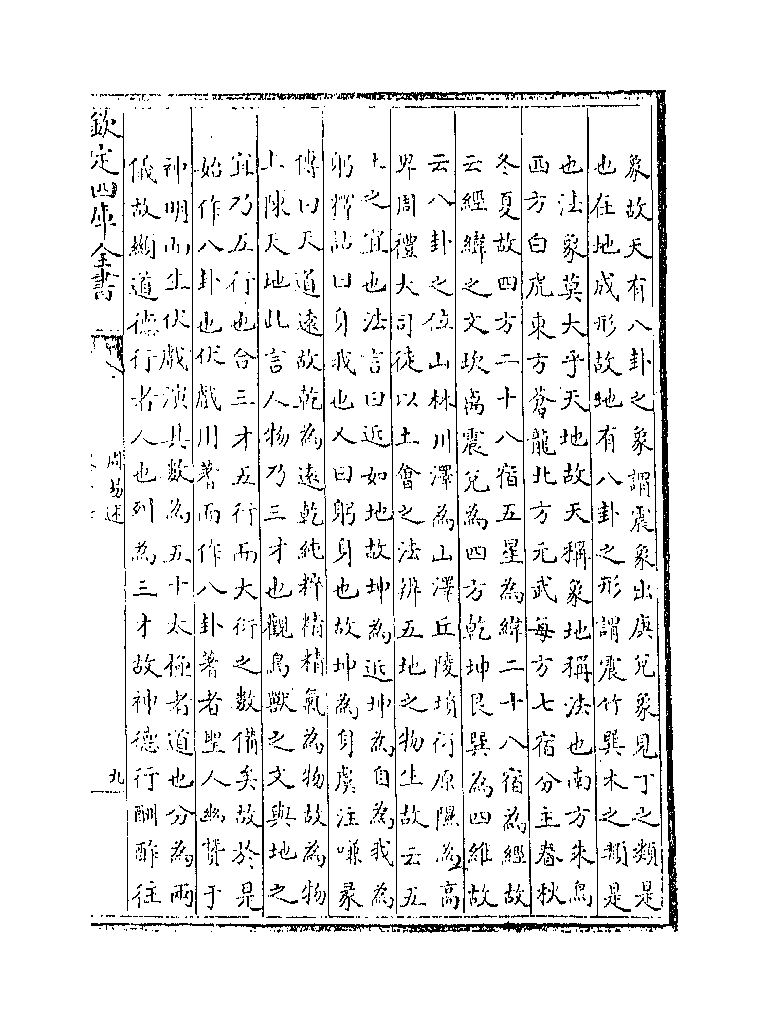 象故天有八卦之象謂震象出庚兌象見丁之類是
也在地成形故地有八卦之形謂震竹巽木之類是
也法象莫大乎天地故天稱象地稱法也南方朱鳥
西方白虎東方蒼龍北方元武每方七宿分主春秋
冬夏故四方二十八宿五星為緯二十八宿為經故
云經緯之文坎离震兌為四方乾坤艮巽為四維故
云八卦之位山林川澤為山澤丘陵墳衍原隰為高
卑周禮大司徒以土會之法辨五地之物生故云五
土之宜也法言曰近如地故坤為近坤為自為我為
躬釋詁曰身我也又曰躬身也故坤為身虞注嗛彖
傳曰天道遠故乾為遠乾純粹精精氣為物故為物
上陳天地此言人物乃三才也觀鳥獸之文與地之
宜乃五行也合三才五行而大衍之數備矣故於是
始作八卦也伏戲用蓍而作八卦蓍者聖人幽贊于
神明而生伏戲演其數為五十太極者道也分為兩
儀故顯道德行者人也列為三才故神德行酬酢往
欽定四庫全書
周易述
九